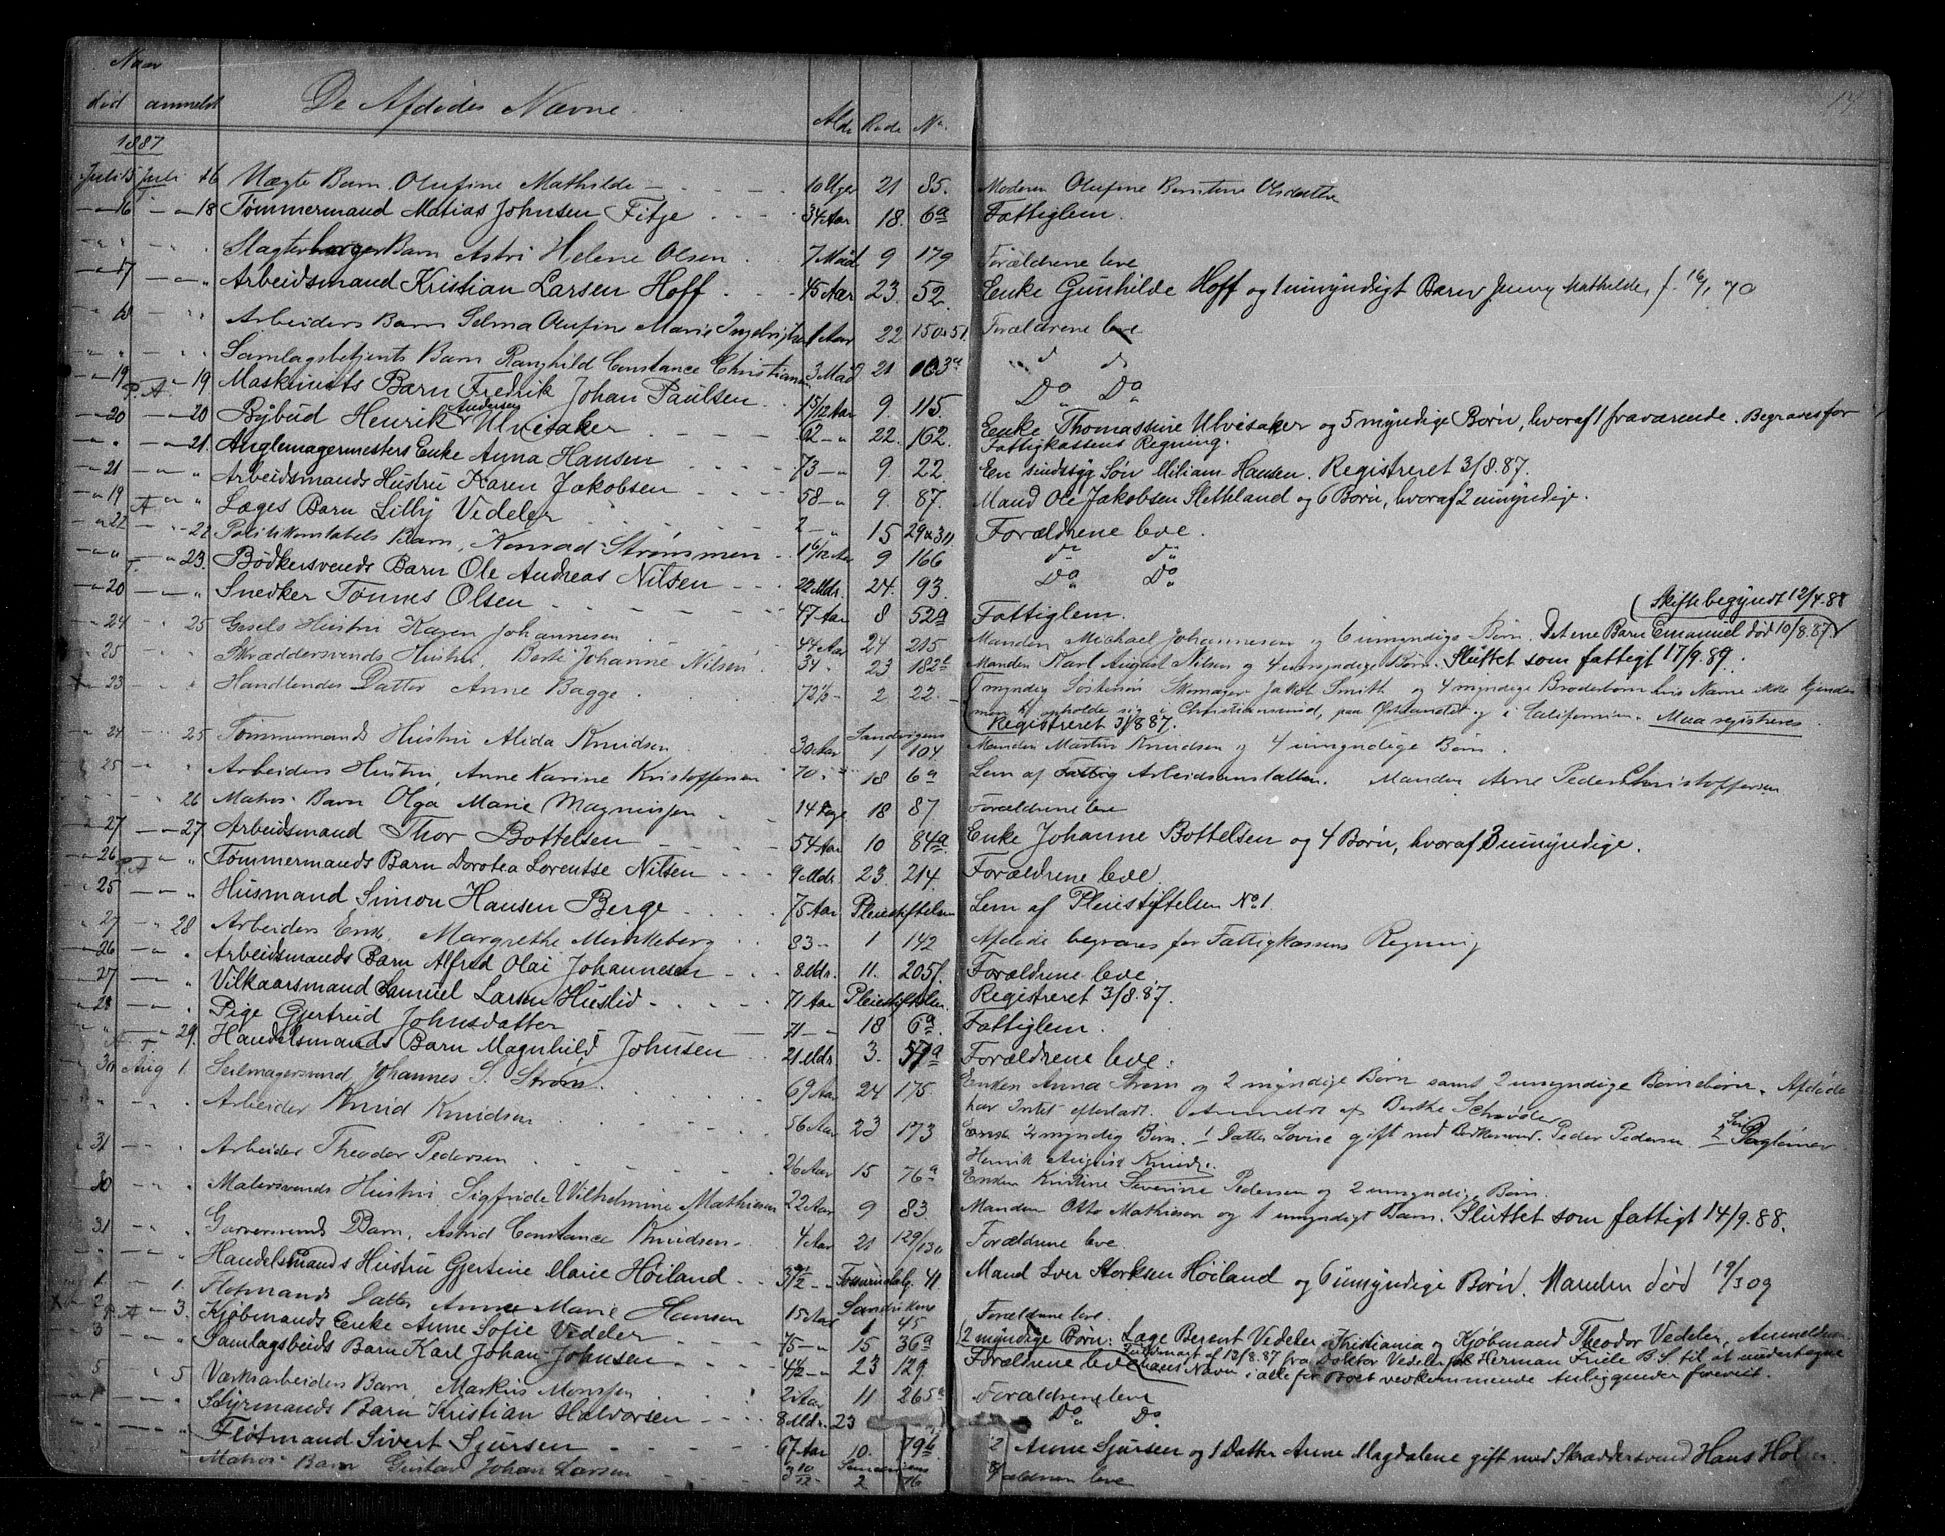 Naar
død anmeldt De Afdødes Navne Alder Rode No.
17
1887
Juli 15 Juli 16 Uægte Barn Olufine Mathilde 10 Uger 21 85. Moderen Olufine Olsdatter
16 18 Tømmermand Matias Johnsen Fitje 34 Aar 18. 6a Fattiglem.
Slagter Barn Astri Helene Olsen 7 Maad 9 179 Forældrene leve
17 Arbeidsmand Kristian Larsen Hoff 45 Aar 23. 52. Enke Gunhilde Hoff og 1 umyndigt Barn Jenny Mathilde f. 16/1 70
18 Arbeiders Barn Selma Olufine Marie 1 Aar 22 150 & 51. Forældrene leve
Samlagsbetjents Barn Ranghild Constance Christiansen 3 Mad 21 103a do do
19 P. A. 19 Maskinists Barn Fredrik Johan Paulsen 1 5/12 Aar 9. 115. Do Do
20 20 Bybud Henrik Andersen Ulvisaker 62 22. 162. Enke Thomassine Ulvisaker og 5 myndige Børn, hvoraf 1 fraværende. Begraves for
Fattigkassens Regning.
21. Anglemagermesters Enke Anna Hansen 73 9. 22. En sindssyg Søn Miliam Hansen. Registreret 3/8.87.
21 Arbeidsmands Hustru Karen Jakobsen 58 9. 87. Mand Ole Jakobsen Sletteland og 6 Børn, hvoraf 2 umyndige.
19 A Læges Barn Lilly Vedeler 2 15 29 & 311 Forældrene leve.
22 22 Politikonstabels Barn, Konrad Strømmen 1 6/12 Aar 9 166 do do
T. 23. Bødkersvends Barn Ole Andreas Nilsen 22 Mdr. 24. 93. Do Do
20 Snedker Tønnes Olsen 47 Aar 8 52a Fattiglem. (Skifte begyndt 12/4.88
24 25 Gesels Hustru Karen Johannesen 44 Aar 24 215 Manden Michael Johannesen og 6 umyndige Børn. Det ene Barn Emanuel død 10/8.87)
25 Skræddersvends Hustru, Berte Johanne Nilsen 34 23 182 Manden Karl August Nilsen og 4 umyndige Børn. Sluttet som fattigt 17/9.89.
x 23 Handlendes Datter Anne Bagge 72 2 22. 1 myndig Søstersøn Skomager Jakob Smith og 4 myndige Broderbørn hvis Navne ikke kjendes
men opholde sig i Christianssund, paa Østlandet og i Californien. Maa registreres
Registreret 3/8.87.
24 25 Tømmermands Hustru Alida Knudsen 30 Aar Sandvigens 1 104 Manden Martin Knudsen og 4 umyndige Børn.
25 Arbeiders Hustru, Anne Karine Kristoffersen 70 18 6a Lem af Fattig Arbeidsanstalten. Manden Arne Pedersen Christoffersen
26 Matros Barn Olga Marie Magnussen 14 Dage 18 87 Forældrene leve
27 27. Arbeidsmand Thor Bottelsen 54 Aar 10 84a Enke Johanne Bottelsen og 4 Børn, hvoraf 3 umyndige.
26 P. A Tømmermands Barn Dorotea Lorentse Nilsen 9 Mdr. 23. 214. Forældrene leve
25 Husmand Simon Hansen Berge 75 Aar Pleiestiftelsen Lem af Pleiestiftelsen No 1.
27 28 Arbeiders Enke, Margrethe Munkeberg 83 1 142 Afdøde begraves for Fattigkassens Regning
26 Arbeidsmands Barn Alfred Olai Johannesen 8 Mdr. 11. 205 Forældrene leve.
27 Vilkaarsmand Samuel Larsen Huslid 71 Aar Pleiestiftelsen Registreret 3/8.87.
28 Pige Gjertrud Johnsdatter 71 18 6a Fattiglem.
29. Handelsmands Barn Magnhild Johnsen 21 Mdr. 3. 57a Forældrene leve.
30 Aug 1. Seilmagersvend Johannes S. Strøm 69 Aar 24 175. Enken Anna Strøm og 2 myndige Børn samt 2 umyndige Børnebørn. Afdøde
har Intet efterladt. Anmeldt af Berthe Schrøder
Arbeider Knud Knudsen 56 Aar 23 173 Enke 2 myndig Børn. 1 Datter Lovise gift med Bødkersvend. Peder Pedersen
Henrik August Knuds.
31 Arbeider Theodor Pedersen 26 Aar 15 76a Enken Kristine Severine Pedersen og 2 umyndige Børn.
30 Malersvends Hustru Sigfride Vilhelmine Mathiesen 22 Aar 9 83 Manden Otto Mathiesen og 1 umyndigt Barn. Sluttet som fattigt 14/9.88.
31 Garversvends Barn, Astrid Constance Knudsen 4 Aar 21 129/130 Forældrene leve.
Handelsmands Hustru Gjertine Marie Høiland 41. Mand Iver Storksen Høiland og 6 umyndige Børn. Manden død 19/3 09
1 1. Datter Anne Marie Hansen 15 Aar Sandvikens 1 45 Forældrene leve.
x 2 P. A 3. Kjøbmands Enke Anne Sofie Vedeler 75 15 36a (2 myndige Børn: Læge Berent Vedeler, Kristiania og Kjøbmand Theodor Vedeler, Anmelderen
Fuldmagt af 13/8.87 fra Doktor Vedeler til Herman Friele B.S. til at undertegne
hans Navn i alle for Boet vedkommende Anliggender forevist.
3 Samlagsbuds Barn Karl Johan Johnsen 23 129. Forældrene leve
5 5 Værksarbeiders Barn, Markus Monssen 2 Aar 11 265a Forældrene leve
Styrmands Barn Kristian Halvorsen 8 Mdr. 23 Do Do
Fløtmand Sivert Sjursen 67 Aar 10. 79b Anne Sjursen og 1 Datter Anne Magdalene gift med Skræddersvend Hans
Matros Barn Gustav Johan Larsen 3 10/12 2 16 Forældrene leve